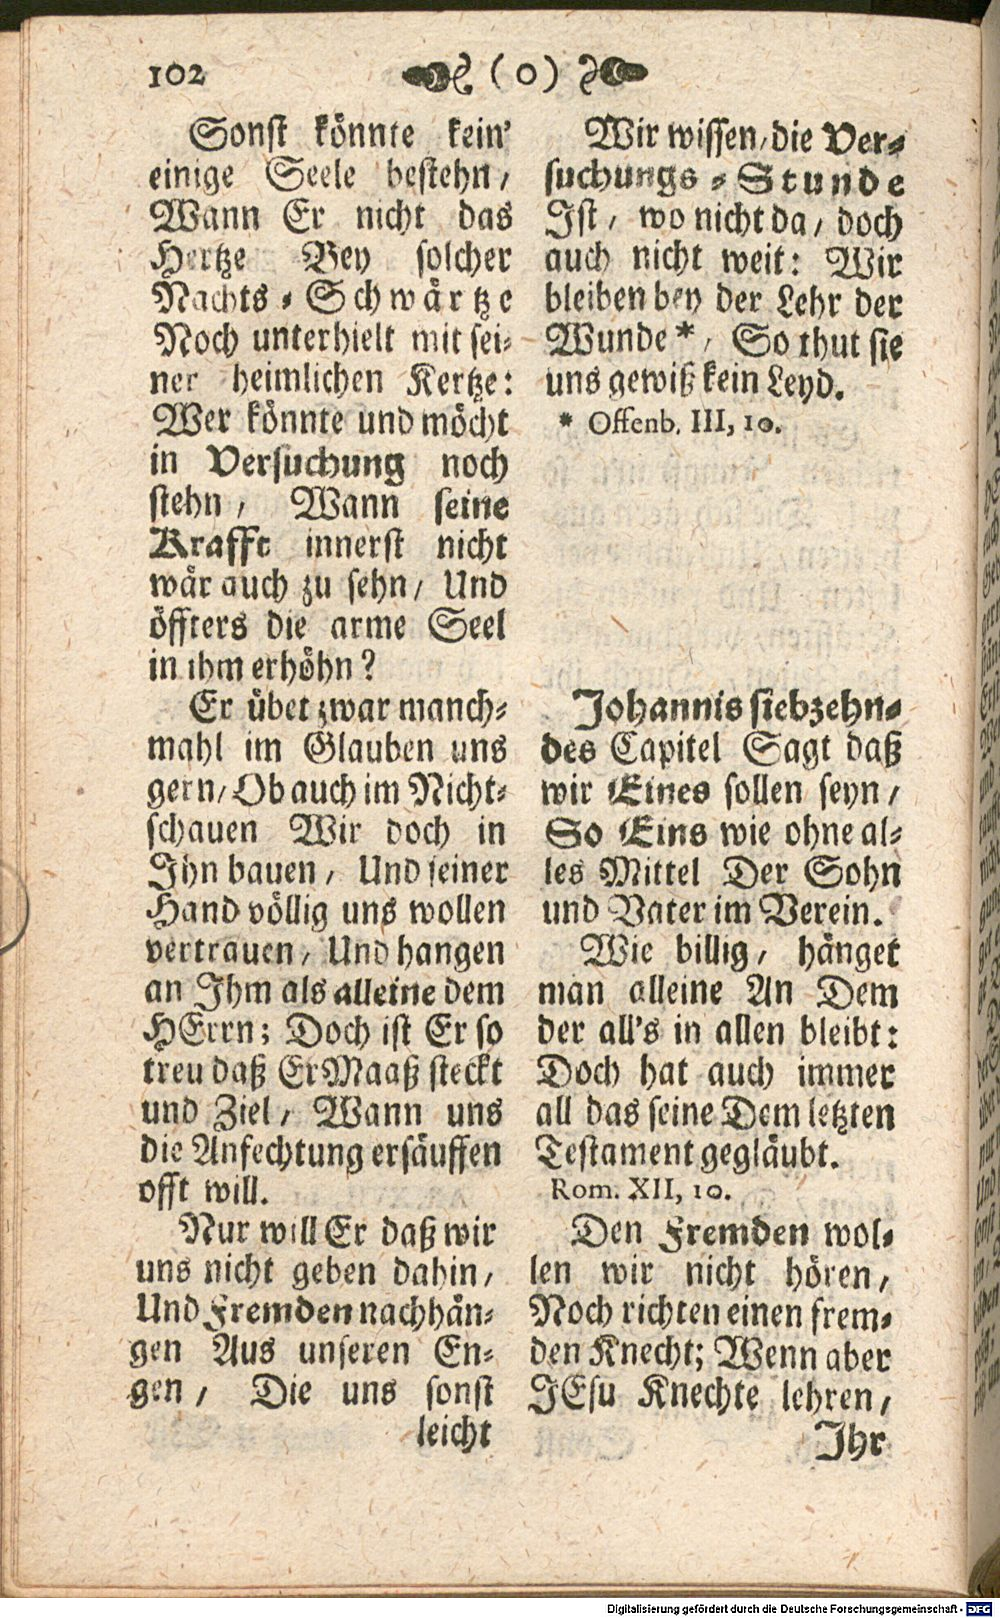 102 ( o )
Sonst könnte kein'
einige Seele bestehn /
Wann Er nicht das
Hertze Bey solcher
Nachts = Schwärtze
Noch unterhielt mit sei=
ner heimlichen Kertze:
Wer könnte und möcht
in Versuchung noch
stehn / Wann seine
Krafft innerst nicht
wär auch zu sehn / Und
öffters die arme Seel
in ihm erhöhn?
Er übet zwar manch=
mahl im Glauben uns
gern / Ob auch im Nicht=
schauen Wir doch in
Ihn bauen / Und seiner
Hand völlig uns wollen
vertrauen / Und hangen
an Ihm als alleine dem
HErrn; Doch ist Er so
treu daß Er Maaß steckt
und Ziel / Wann uns
die Anfechtung ersäuffen
offt will.
Nur will Er daß wir
uns nicht geben dahin /
Und Fremden nachhän=
gen Aus unseren En=
gen / Die uns sonst
leicht
Wir wissen / die Ver=
suchungs = Stunde
Ist / wo nicht da / doch
auch nicht weit: Wir
bleiben bey der Lehr der
Wunde * / So thut sie
uns gewiß kein Leyd.
* Offenb. III, 10.
Johannis siebzehn=
des Capitel Sagt daß
wir Eines sollen seyn /
So Eins wie ohne al=
les Mittel Der Sohn
und Vater im Verein.
Wie billig / hänget
man alleine An Dem
der all's in allen bleibt:
Doch hat auch immer
all das seine Dem letzten
Testament gegläubt.
Rom. XII, 10.
Den Fremden wol=
len wir nicht hören /
Noch richten einen frem=
den Knecht; Wenn aber
JEsu Knechte lehren /
Ihr
Digitalisierung gefördert durch die Deutsche Forschungsgemeinschaft - DFG